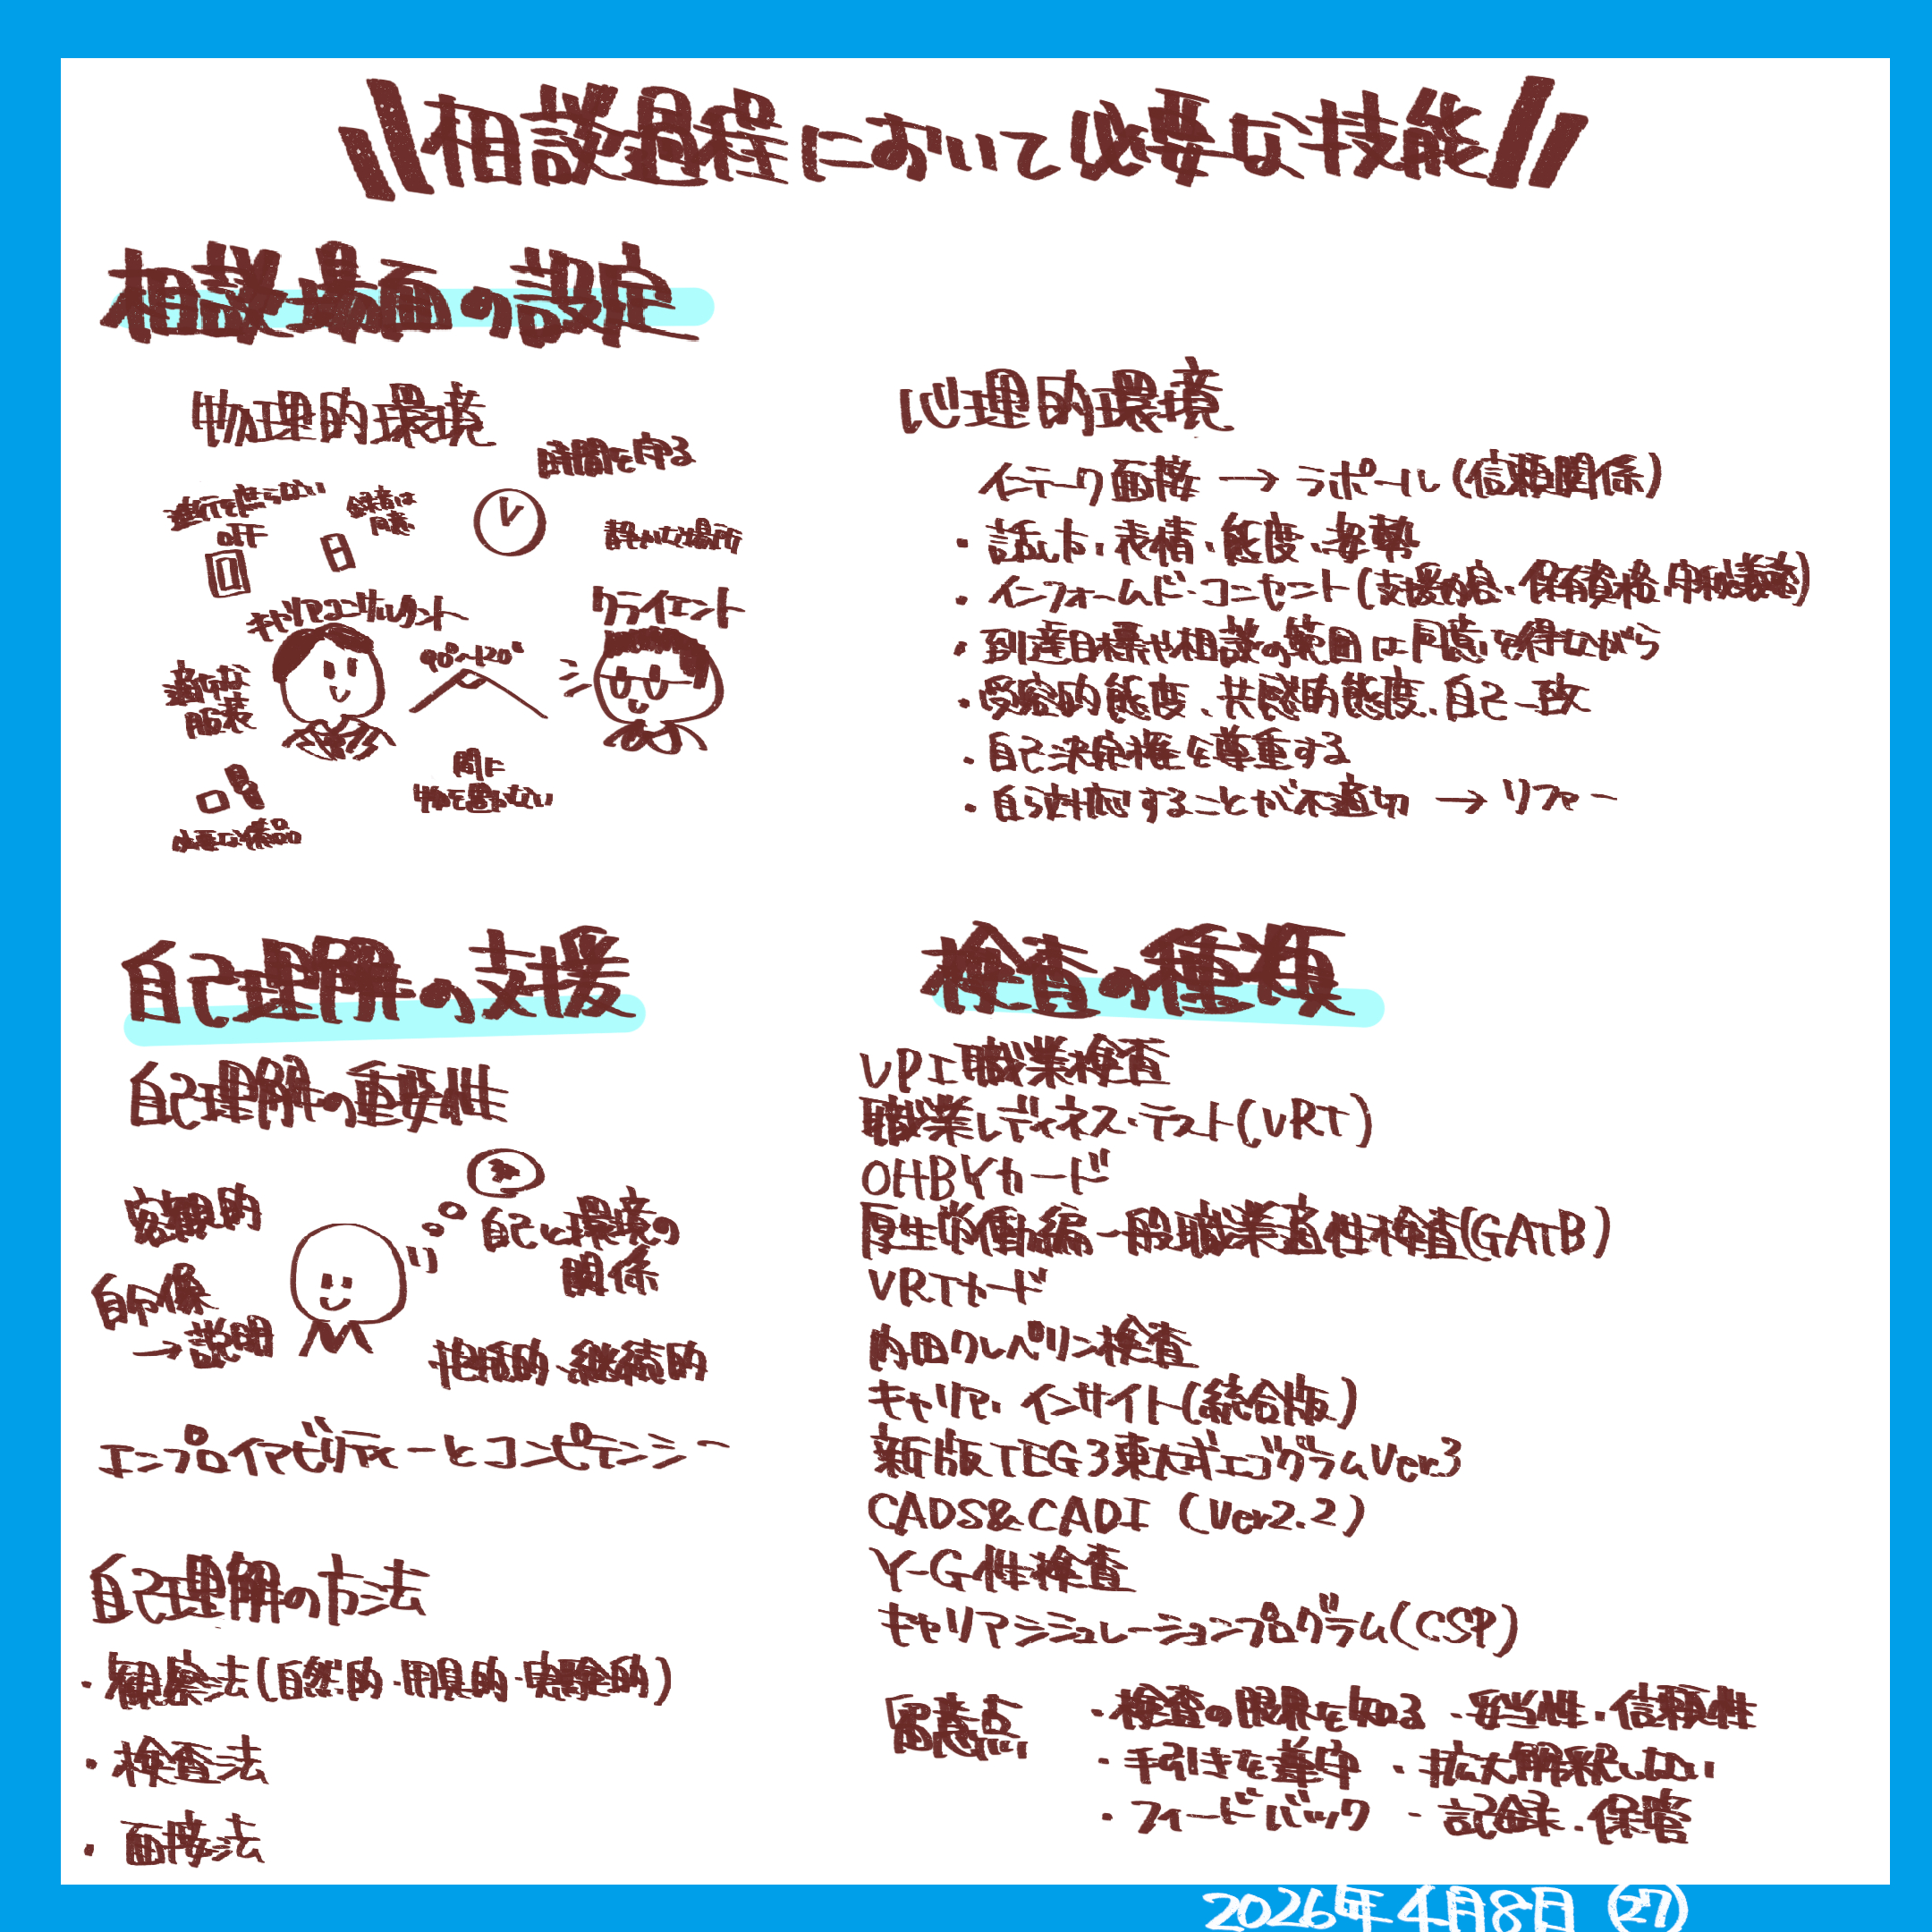 相談過程において必要な技能
相談場面の設定
物理的環境
時間を守る
off
録音は
同意
静かな場所
キャリアコンサルタント
クライエント
90°〜120°
適切な
服装
間に
物を置かない
必要な備品
心理的環境
インテーク面接→ラポール(信頼関係)
・話し方・表情・態度・姿勢
・インフォームド・コンセント(支援内容・保有資格・守秘義務)
・到達目標や相談の範囲は同意を得ながら
・受容的態度、共感的態度、自己一致
・自己決定権を尊重する
・自ら対応することが不適切→リファー
自己理解の支援
自己理解の重要性
客観的
自分像
→説明
自己と環境の
関係
包括的・継続的
エンプロイアビリティーとコンピテンシー
自己理解の方法
・観察法(自然的・用具的・実験的)
・検査法
・面接法
検査の種類
VPI職業検査
職業レディネス・テスト(VRT)
OHBYカード
厚生労働編一般職業適性検査(GATB)
VRTカード
内田クレペリン検査
キャリア・インサイト(統合版)
新版TEG3東大式エゴグラムVer3
CADS&CADI (Ver2.2)
Y-G性検査
キャリアシミュレーションプログラム(CSP)
留意点
・検査の限界を知る ・妥当性・信頼性
・手引きを遵守 ・拡大解釈しない
・フィードバック ・記録・保管
2026年4月8日 ㉗